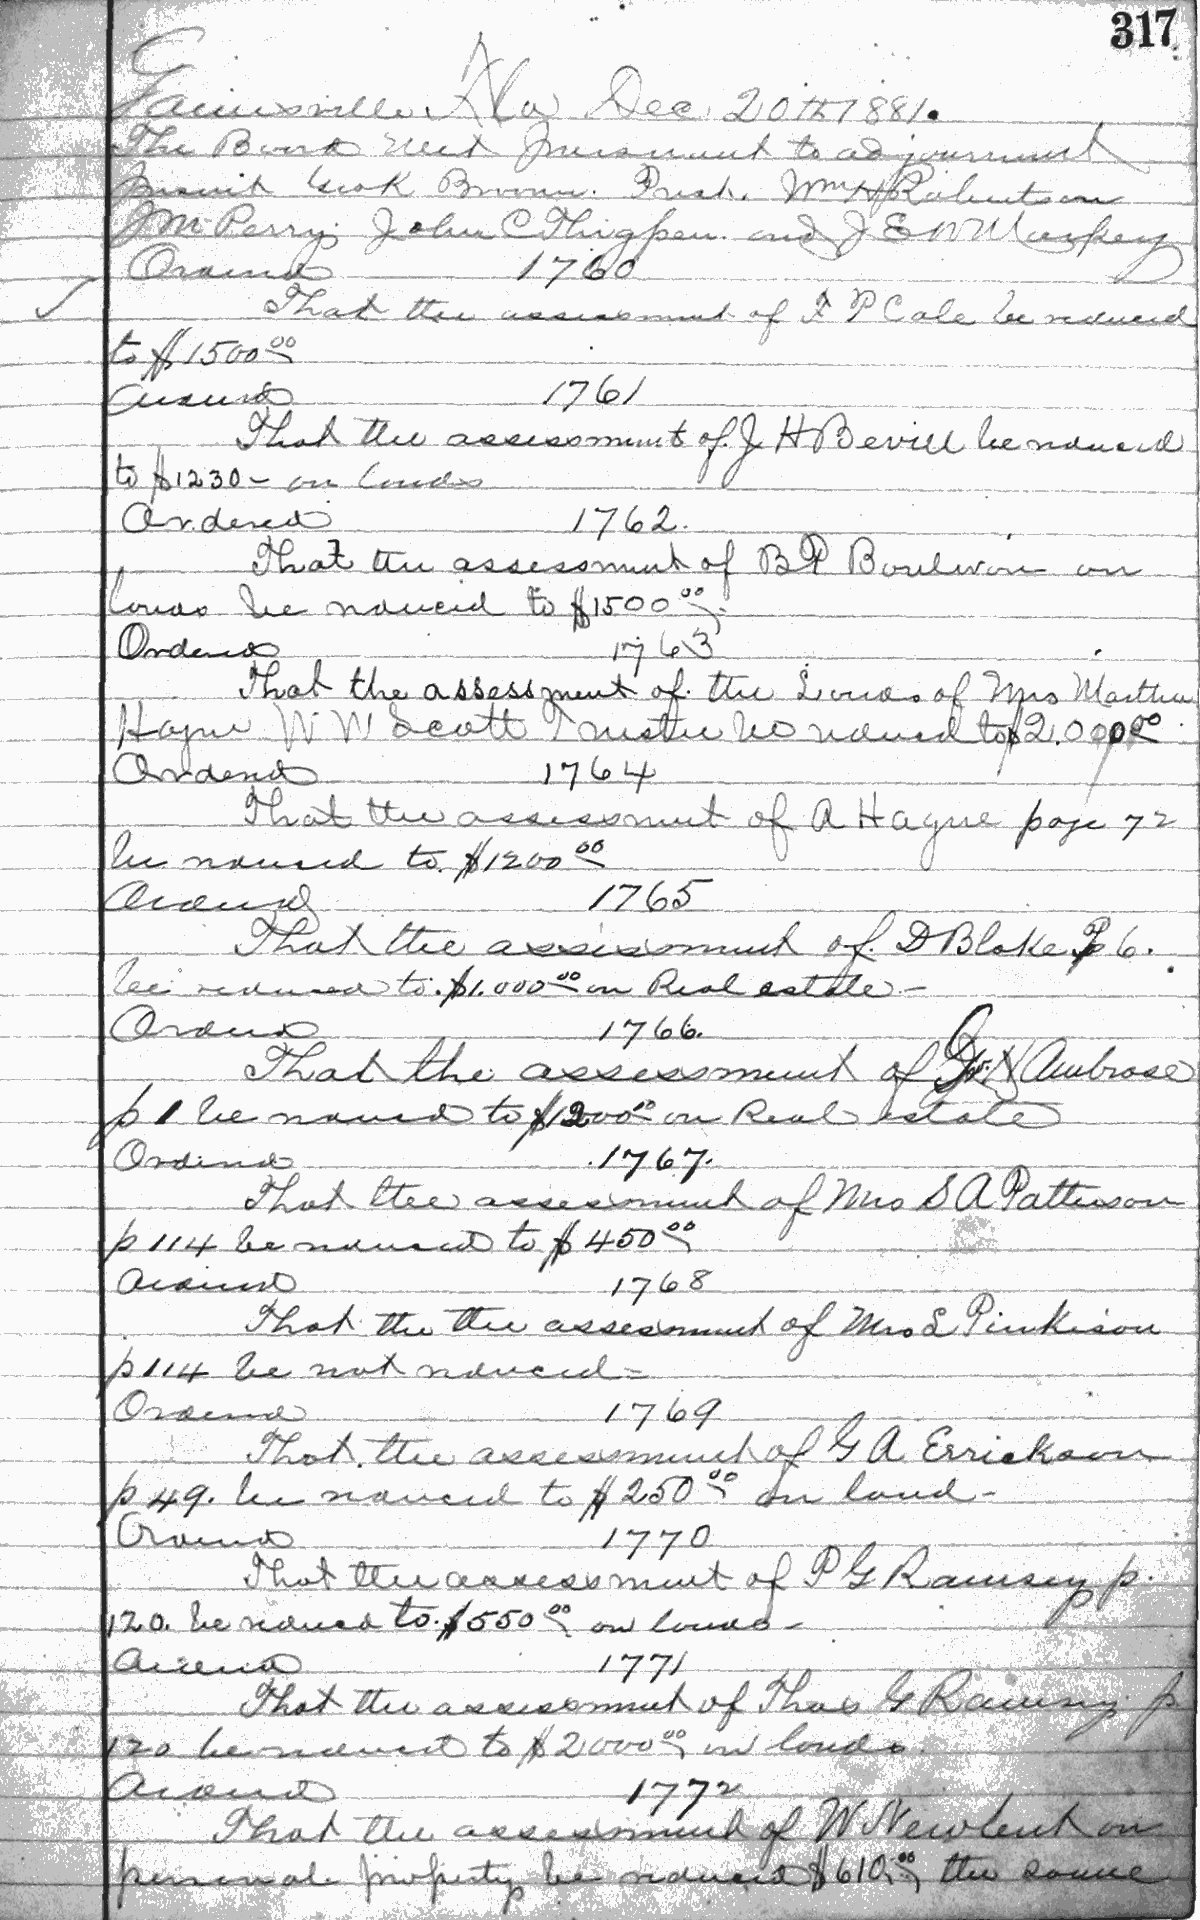 317
Gainesville Fla Dec 20th 1881.
The Board met pursuant to adjournment
present Geo K Broome. Prest. Wm H Robertson
J M Perry; John C Thigpen. and J E W
Ordered 1760
That the assessment of F P Cole be reduced
to $1500 00
Ordered 1761
That the assessment of J H Bevill be reduced
to $1230 - on lands
Ordered 1762.
That the assessment of B P on
lands be reduced to $1500 00
Ordered 1763
That the assessment of the Lands of Mrs Martha
Hayne W W Scott Trustee be reduced to $2.000 00
Ordered 1764
That the assessment of A Hayne page 72
be reduced to $1200 00
Ordered 1765
That the assessment of D Blake P 6.
be reduced to $1.000 00 on Real estate -
Ordered 1766.
That the assessment of Ambrose
p 1 be reduced to $1200 00 on Real estate
Ordered 1767.
That the assessment of Mrs S A Patterson
p 114 be reduced to $450 00
Ordered 1768
That the the assessment of Mrs L Pinkison
p 114 be not reduced =
Ordered 1769
That the assessment of G A Errickson
p 49. be reduced to $250 00 on land -
Ordered 1770
That the assessment of P G Ramsey p.
120. be reduced to $550 00 on lands -
Ordered 1771
That the assessment of Thos G Ramsey p
120 be reduced to $2000 00 on lands
Ordered 1772
That the assessment of W Newbert on
personal property be reduced $610 00 the same